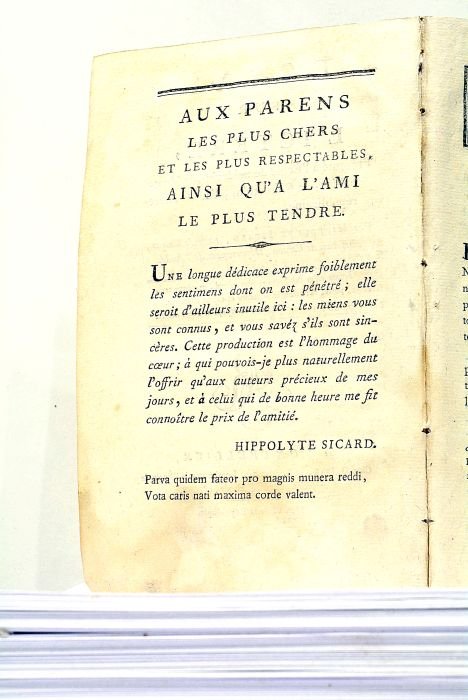 AUX PARENS
LES PLUS CHERS
ET LES PLUS RESPECTABLES,
AINSI QU'A L'AMI
LE PLUS TENDRE.
UNE longue dédicace exprime foiblement
les sentimens dont on est pénétré ; elle
seroit d'ailleurs inutile ici : les miens vous
sont connus, et vous savez s'ils sont sin-
cères. Cette production est l'hommage du
cœur ; à qui pouvois-je plus naturellement
l'offrir qu'aux auteurs précieux de mes
jours, et à celui qui de bonne heure me fit
connoître le prix de l'amitié.
HIPPOLYTE SICARD.
Parva quidem fateor pro magnis munera reddi,
Vota caris nati maxima corde valent.